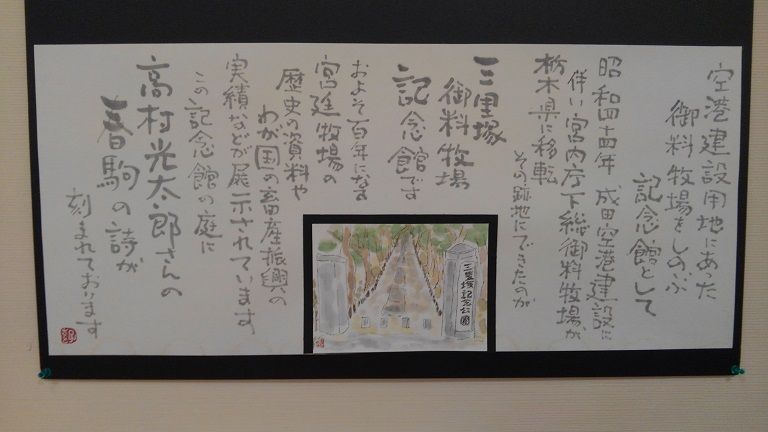 空港建設用地にあた
御料牧場をしのぶ
記念館として
昭和四十四年 成田空港建設に
伴い宮内庁下総御料牧場が
栃木県に移転
その跡地にできたのが
三里塚
御料牧場
記念館です
およそ百年になる
宮廷牧場の
歴史の資料や
わが国の畜産振興の
実績などが展示されています
この記念館の庭に
高村光太郎さんの
春駒の詩が
刻まれております
三里塚記念公園